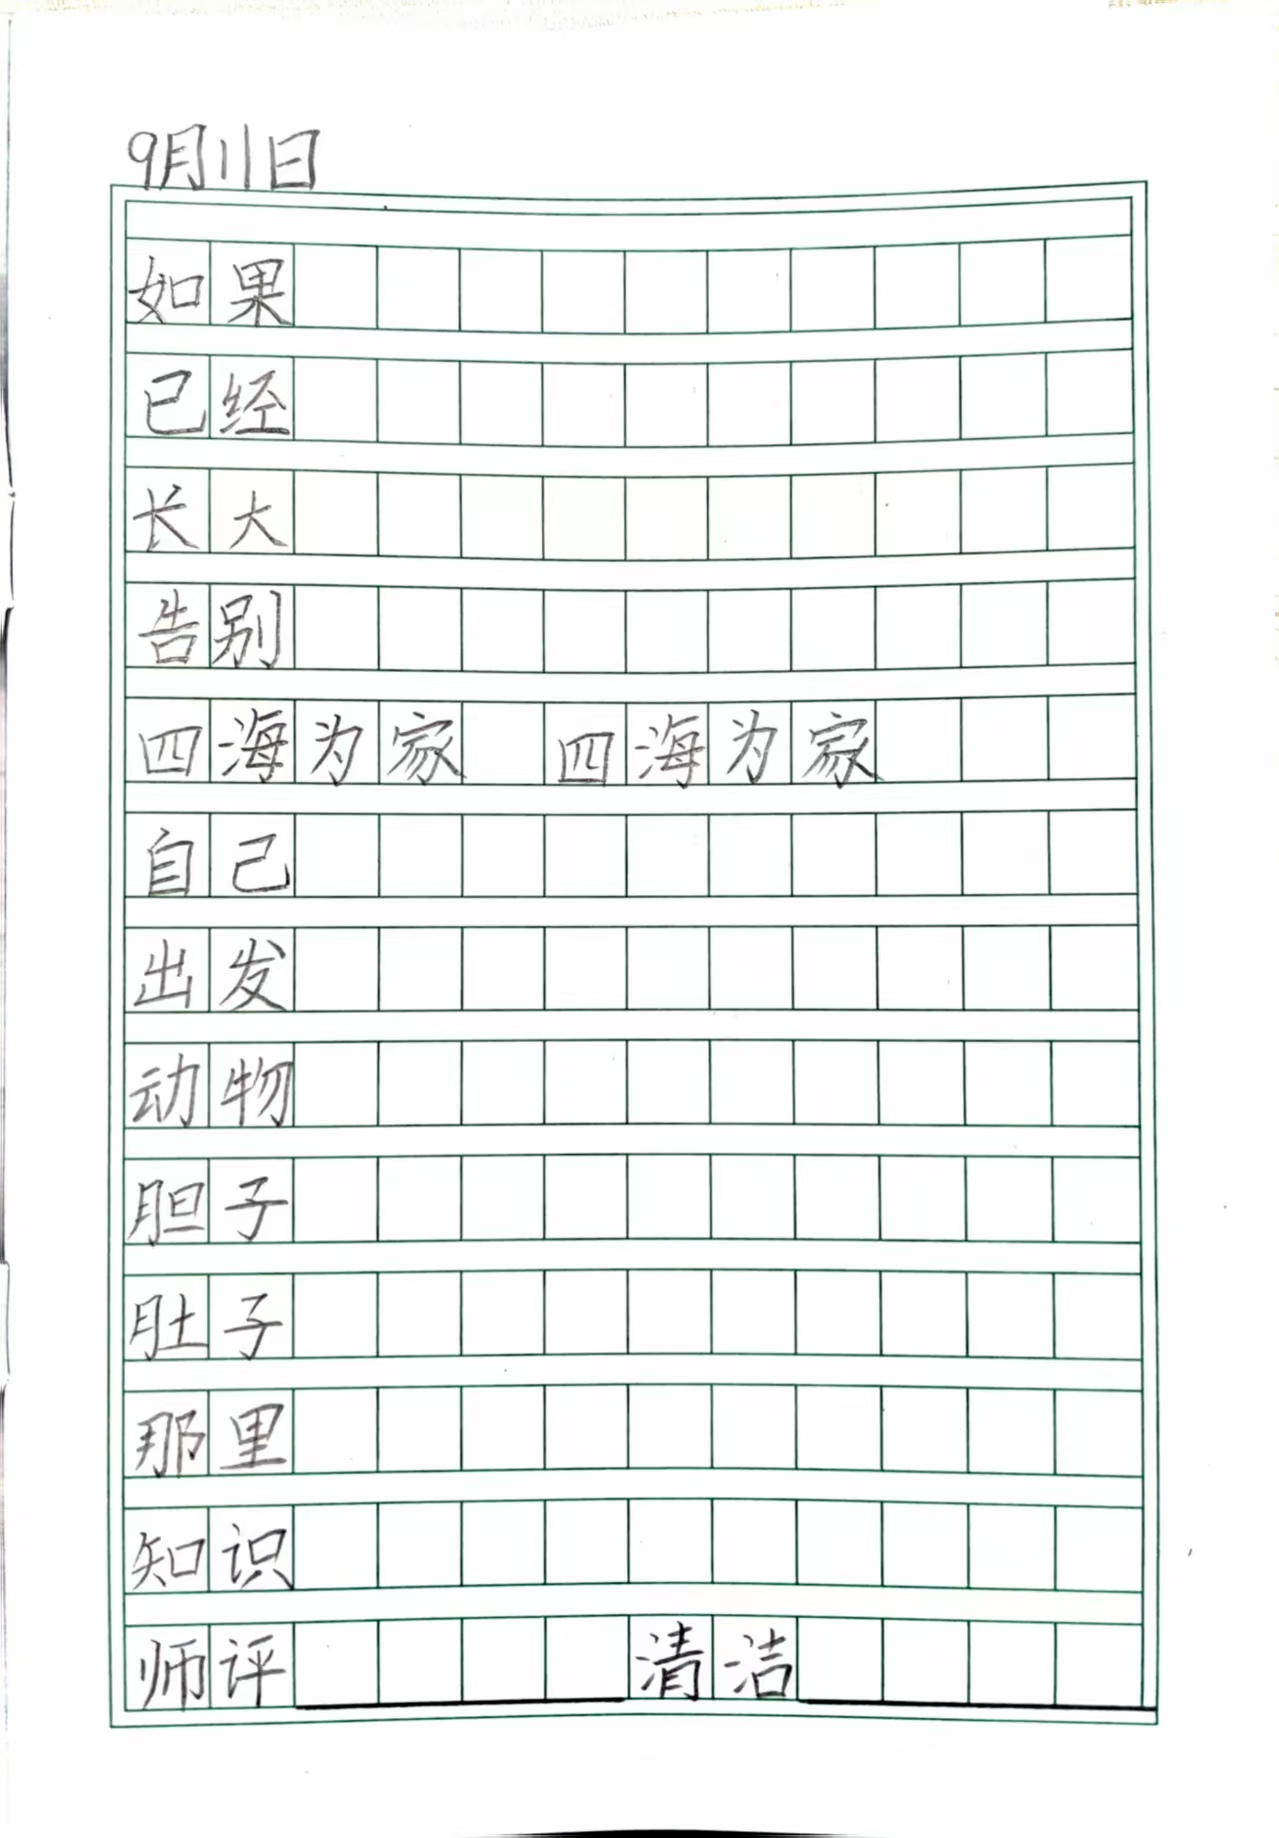 9月11日
如果
已经
长大
告别
四海为家 四海为家
自己
出发
动物
胆子
肚子
那里
知识
师评 清洁